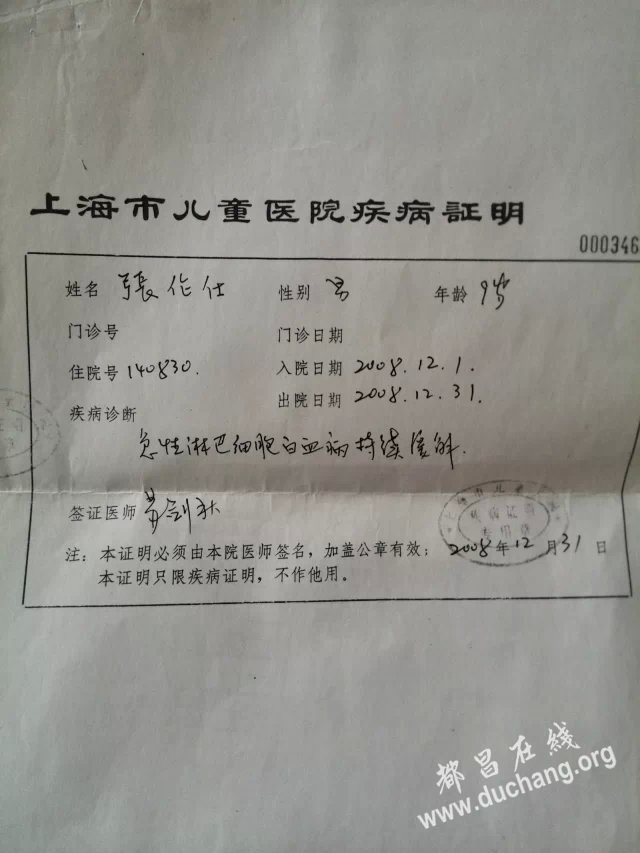 上海市儿童医院疾病証明
000346
姓名 張作仕 性别 男 年龄 9岁
门诊号 门诊日期
住院号 140830. 入院日期 2008.12.1.
出院日期 2008.12.31.
疾病诊断
急性淋巴细胞白血病持续缓解.
签证医师
上海市儿童
疾病证明
专用章
注：本证明必须由本院医师签名，加盖公章有效； 2008年12月31日
本证明只限疾病证明，不作他用。
都昌在线
www.duchang.org